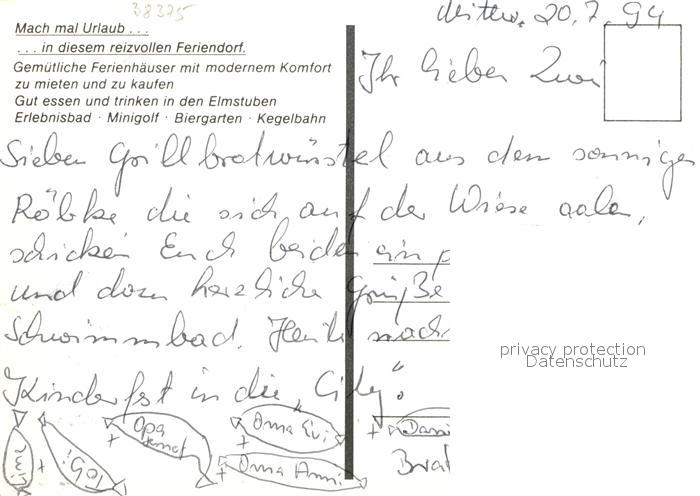 38375
Mittw. 20.7.94
Mach mal Urlaub . . .
. . . in diesem reizvollen Feriendorf.
Gemütliche Ferienhäuser mit modernem Komfort
zu mieten und zu kaufen
Gut essen und trinken in den Elmstuben
Erlebnisbad · Minigolf · Biergarten · Kegelbahn
Ihr lieben Zwei
Sieben Grillbratwürstel aus dem sonnigen
Räbke die sich auf der Wiese aalen,
schicken Euch beiden ein p
und dazu herzliche Grüße
Schwimmbad. Heute nach
Kinderfest in die „City".
+ Opa + Oma Evi + Dani
+ + Oma Anni Brat
privacy protection
Datenschutz